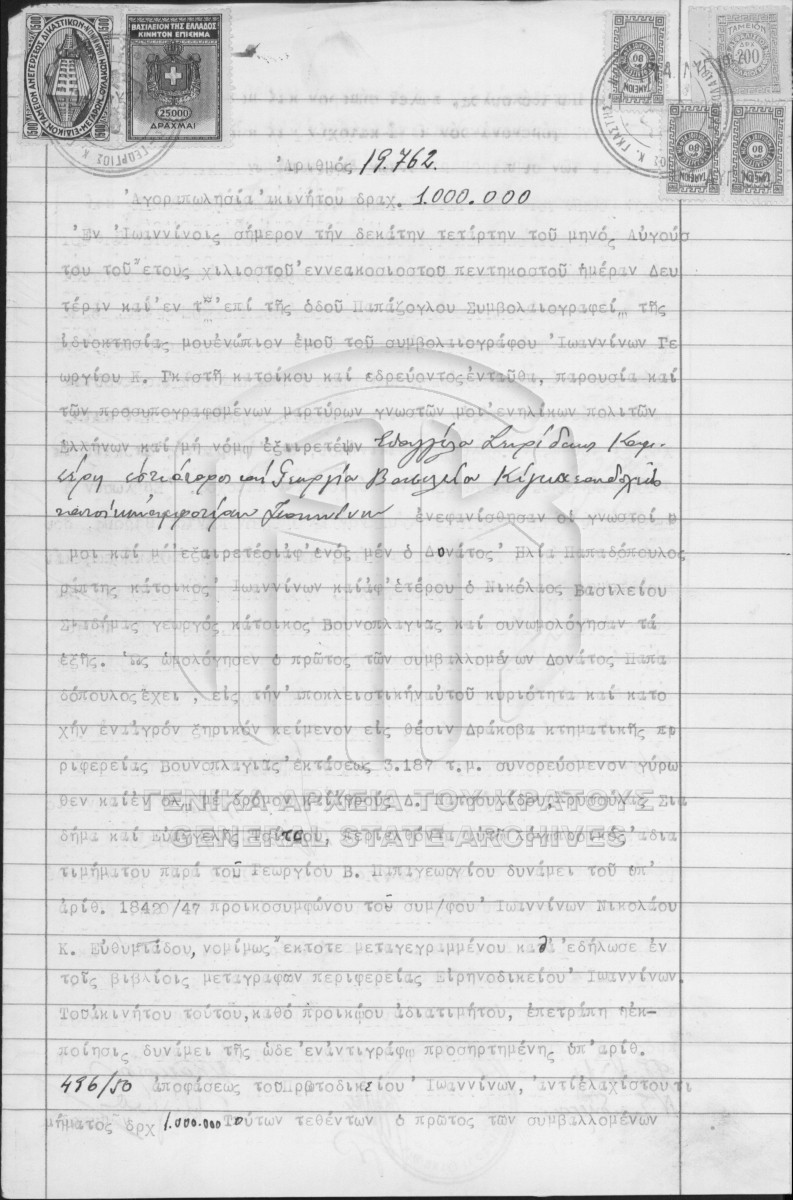 ΒΑΣΙΛΕΙΟΝ ΤΗΣ ΕΛΛΑΔΟΣ
ΚΙΝΗΤΟΝ ΕΠΙΣΗΜΑ
25000
ΔΡΑΧΜΑΙ
ΤΑΜΕΙΟΝ
ΔΡΑΧ
200
Ἀριθμός 19.762.
Ἀγοραπωλησία ἀκινήτου δραχ. 1.000.000
Ἐν Ἰωαννίνοις σήμερον τήν δεκάτην τετάρτην τοῦ μηνός Αὐγούσ
του τοῦ ἔτους χιλιοστοῦ ἐννεακοσιοστοῦ πεντηκοστοῦ ἡμέραν Δευ
τέραν καί ἐν τῷ ἐπί τῆς ὁδοῦ Παπάζογλου Συμβολαιογραφείῳ τῆς
ἰδιοκτησίας μου ἐνώπιον ἐμοῦ τοῦ συμβολαιογράφου Ἰωαννίνων Γε
ωργίου Κ. Γκαστῆ κατοίκου καί ἑδρεύοντος ἐνταῦθα, παρουσίᾳ καί
τῶν προσυπογραφομένων μαρτύρων γνωστῶν μοι ἐνηλίκων πολιτῶν
Ἑλλήνων καί μή νόμῳ ἐξαιρετέων
καί Γεωργία Βασιλείου
ἐνεφανίσθησαν οἱ γνωστοί
μοι καί μή ἐξαιρετέοι ἀφ' ἑνός μέν ὁ Δονάτος Ἠλία Παπαδόπουλος
ράπτης κάτοικος Ἰωαννίνων καί ἀφ' ἑτέρου ὁ Νικόλαος Βασιλείου
Σιαδήμας γεωργός κάτοικος Βουνοπλαγιᾶς καί συνωμολόγησαν τά
ἑξῆς. Ὡς ὡμολόγησεν ὁ πρῶτος τῶν συμβαλλομένων Δονάτος Παπα
δόπουλος ἔχει , εἰς τήν ἀποκλειστικήν αὐτοῦ κυριότητα καί κατο
χήν ἕνα ἀγρόν ξηρικόν κείμενον εἰς θέσιν Δράκοβα κτηματικῆς πε
ριφερείας Βουνοπλαγιᾶς ἐκτάσεως 3.187 τ.μ. συνορεύομενον γύρω
θεν καί ἐν ὅλῳ μέ δρόμον καί ἀγρούς Δ. Χρυσούλας Σια
δήμα καί
τιμήματου παρά τοῦ Γεωργίου Β. Παπαγεωργίου δυνάμει τοῦ ὑπ'
ἀριθ. 18420/47 προικοσυμφώνου τοῦ συμ/φου Ἰωαννίνων Νικολάου
Κ. Εὐθυμιάδου, νομίμως ἔκτοτε μεταγεγραμμένου καθ' ἅ ἐδήλωσε ἐν
τοῖς βιβλίοις μεταγραφῶν περιφερείας Εἰρηνοδικείου Ἰωαννίνων.
Τοῦ ἀκινήτου τούτου, καθό προικῴου ἀδιατιμήτου, ἐπετράπη ἡ ἐκ-
ποίησις δυνάμει τῆς ὧδε ἐν ἀντιγράφῳ προσηρτημένης ὑπ' ἀριθ.
496/50 ἀποφάσεως τοῦ Πρωτοδικείου Ἰωαννίνων, ἀντί ἐλαχίστου τι
μήματος δρχ 1.000.000 Τούτων τεθέντων ὁ πρῶτος τῶν συμβαλλομένων
ΓΕΝΙΚΑ ΑΡΧΕΙΑ ΤΟΥ ΚΡΑΤΟΥΣ
GENERAL STATE ARCHIVES